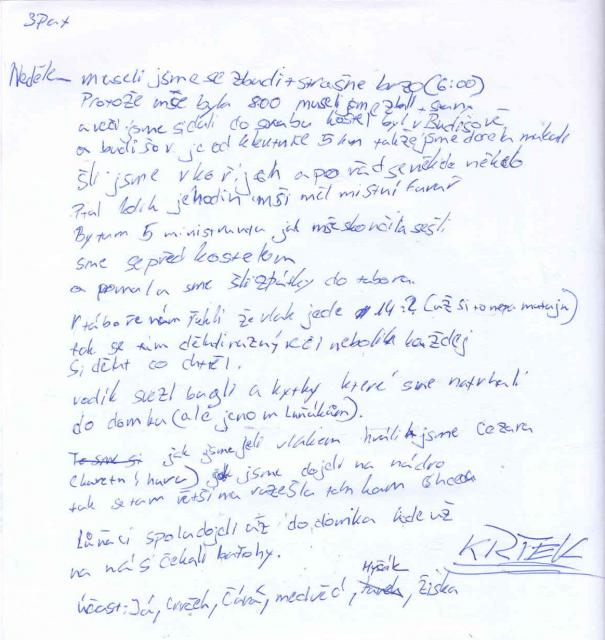 3Pat
Neděle museli jsme se zbudit strašne brzo (6:00)
Protože mše byla 800 museli jsme zbalit
a vězi jsme si dali do kostel byl v Budišově
a budišov je od 5 km takže jsme docela
šli jsme v a po řád se někde někdo
Ptal kolik je hodin mši měl mistní farář
By tum 5 ministrantu jak mše skončila sešli
sme se před kostelom
a pomalu sme šli zpátky do tabora
V táboře nám řekli že vlak jede 14:? (už si to nepamatuju)
tak se tam děl nebo li každej
Si děl co chtěl.
vodik svezl bagli a kytky které sme natrhali
do domku (ale jenom Luňákům).
To sme si jak jsme jeli vlakem hráli jsme Cezara
(karetní hura) jak jsme dojeli na nádro
tak se tam většina rozešla tam kam chcou
Luňáci spolu dojeli až do domika kde už
na nás čekali baťohy.
KRTEK
Myšík
účast: Já, Cvrček, Čárá, medvěd, , Žiška